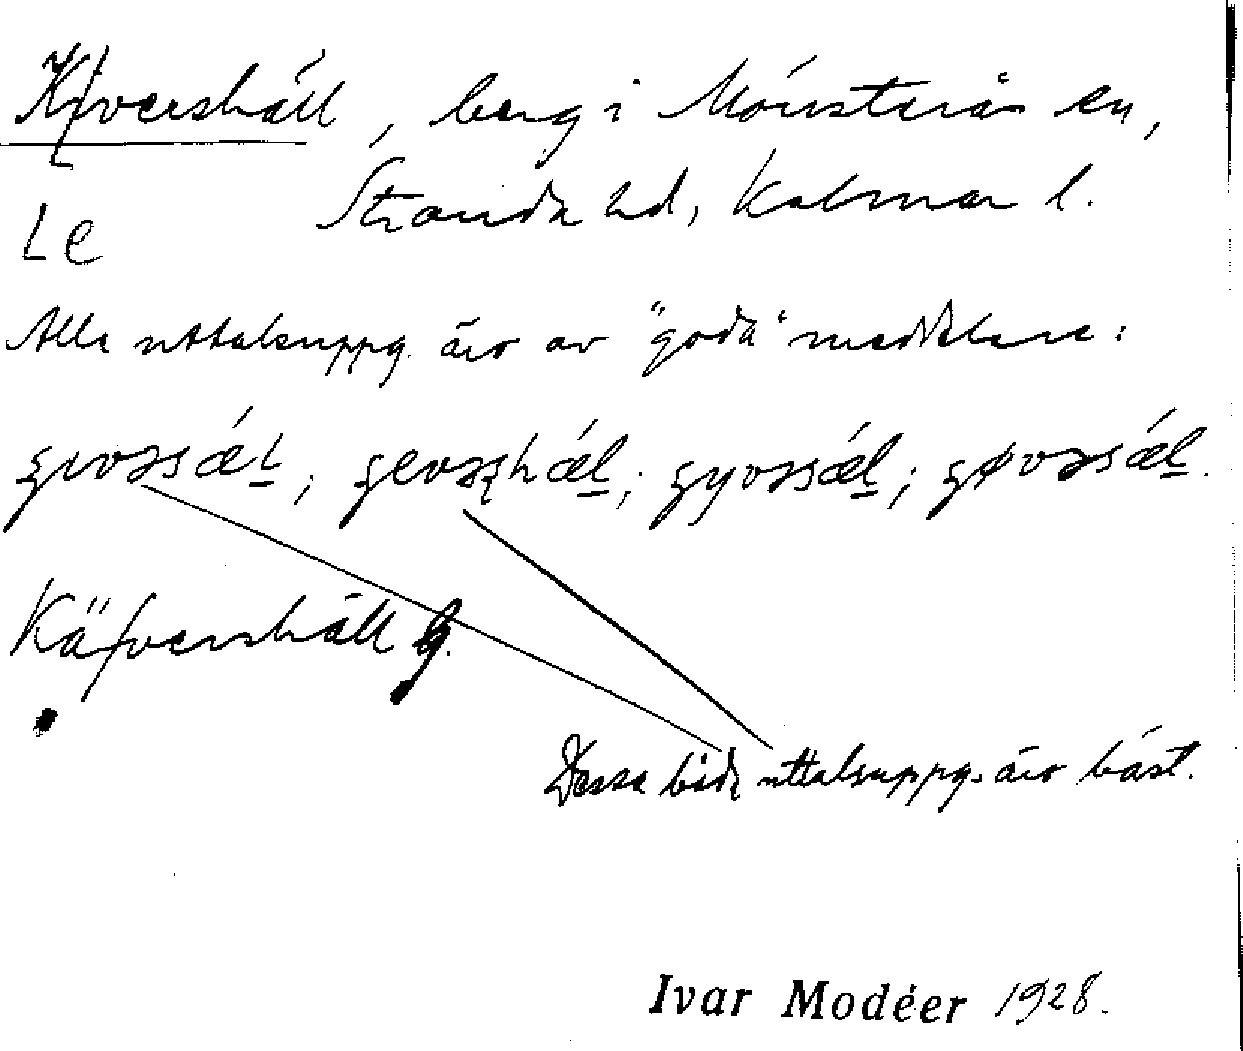 Kivershäll, berg i Mönsterås sn,
Le
Stranda hd, Kalmar l.
Alla uttalsuppg. äro av "goda" meddelare:
Käfvershäll
Dessa båda uttalsuppg. äro bäst.
Ivar Modéer 1928.